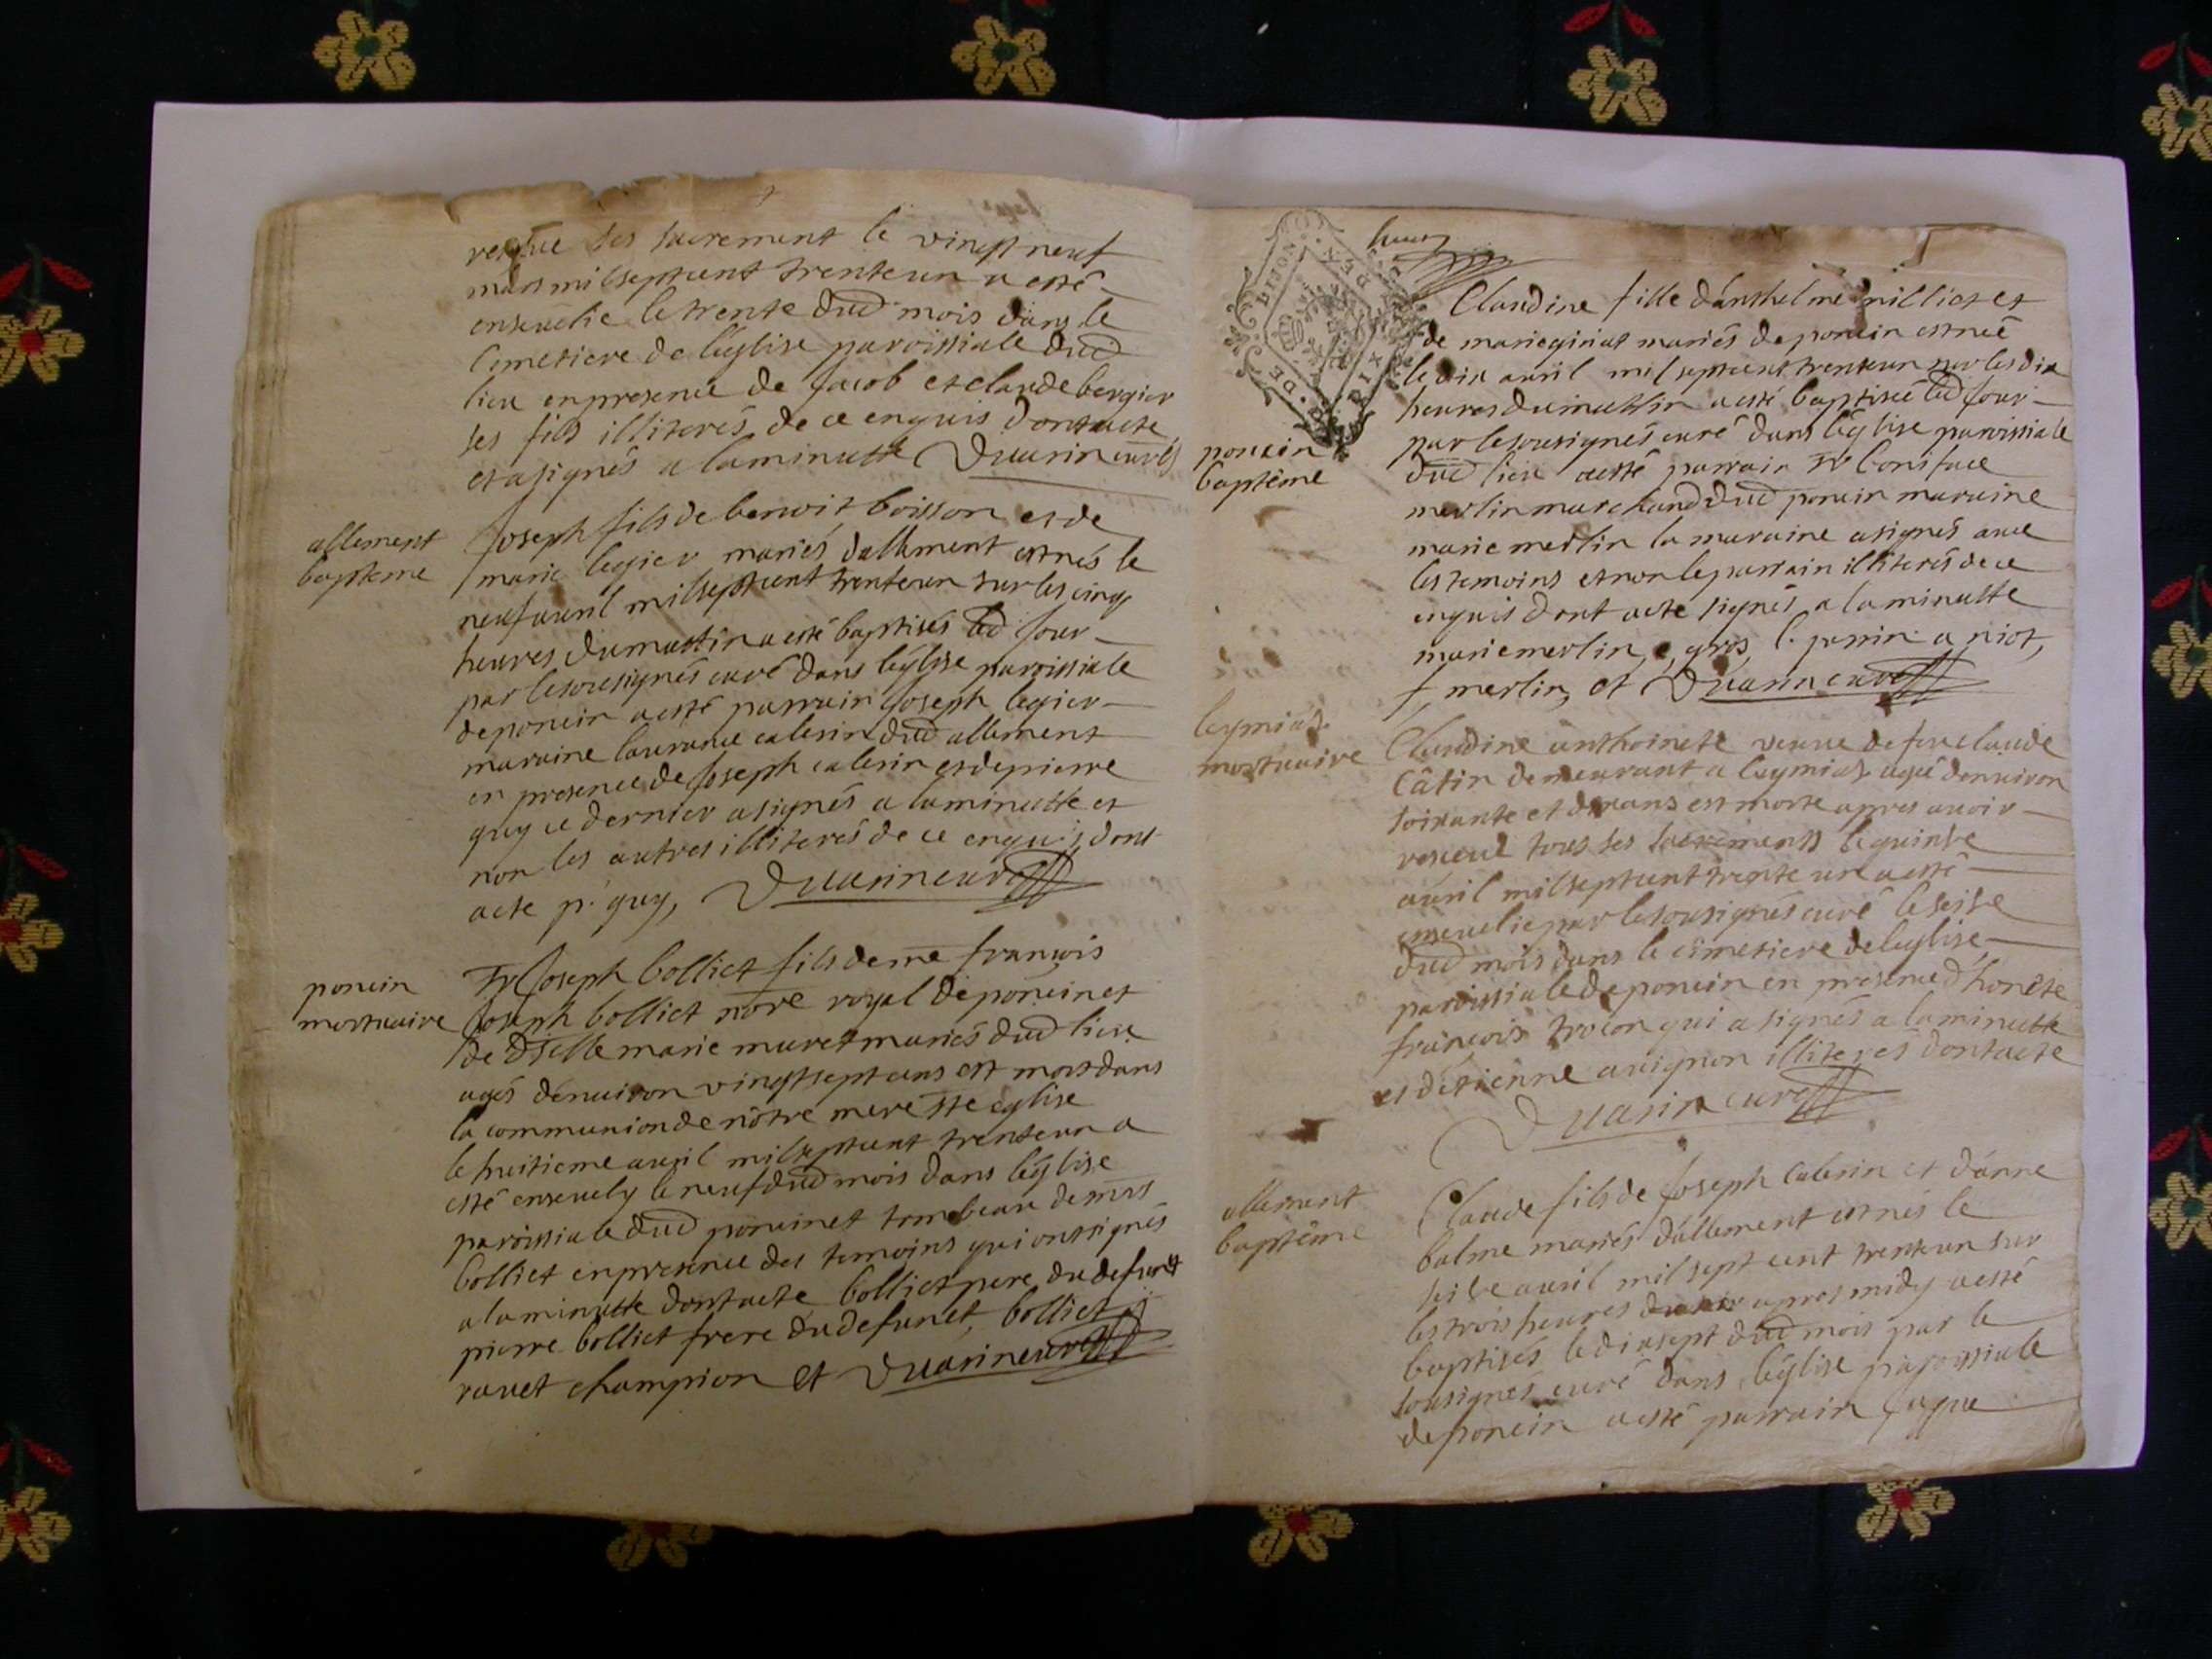 ses sacrement le vingt neuf
mars mil sept cent trente un a esté
ensevelie le trente dud mois dans le
Cimetiere de leglise paroissiale dud
lieu en presence de Jacob et claude bergier
ses fils illiterés de ce enquis dont acte
et a signés a la minutte D varin curé
allement
bapteme
Joseph fils de benoit boisson et de
marie legier mariés dallement est nés le
neuf avril mil sept cent trente un sur les cinq
heures du mattin a esté baptisés led jour
par le sousignés curé dans leglise paroissiale
de poncin a esté parrain Joseph legier
maraine laurance calerin dud allement
en presence de Joseph calerin et de pierre
guy ce dernier a signés a la minutte et
non les autres illiterés de ce enquis dont
acte p. guy, D varin curé
poncin
mortuaire
Sr Joseph bolliet fils de me françois
Joseph bolliet nore royal de poncin et
de dselle marie muret mariés dud lieu
agés denuiron vingt sept ans est mort dans
la communion de nôtre mere ste eglise
le huitieme avril mil sept cent trente un a
esté ensevely le neuf dud mois dans leglise
paroissiale dud poncin et tombeau de mrs
bolliet en presence des temoins qui ont signés
a la minutte dont acte bolliet pere du defunct
pierre bolliet frere du defunct, bolliet
ravet champion et D varin curé
GEN
DE DIJON
DIX
Claudine fille danthelme milliet et
de marie ginat mariés de poncin est neé
le dix avril mil sept cent trente un sur les dix
heures du mattin a esté baptiseé led jour
par le sousignés curé dans leglise paroissiale
dud lieu a esté parrain Sr boniface
merlin marchand dud poncin maraine
marie merlin la maraine a signés avec
les temoins et non le parrain illiterés de ce
enquis dont acte signés a la minutte
marie merlin, c, gros, l. perrin a niot,
f, merlin, et D varin curé
poncin
baptême
leymiat
mortuaire
Claudine anthoinete veuve de feu claude
Câtin demeurant a leymiat ageé denuiron
soixante et dix ans est morte appres avoir
receue tous ses sacrements le quinse
avril mil sept cent trente un a esté
ensevelie par le sousignés curé le seise
dud mois dans le cimetiere de leglise
paroissiale de poncin en presence d'honête
françois trocon qui a signés a la minutte
et d'etienne avignon illiterés dont acte
D varin curé
allement
baptême
Claude fils de Joseph Calerin et d'anne
balme mariés d'allement est nés le
seise avril mil sept cent trente un sur
les trois heures apres midy a esté
baptisés le dix sept dud mois par le
sousignés curé dans leglise paroissiale
de poncin a esté parrain Jaque